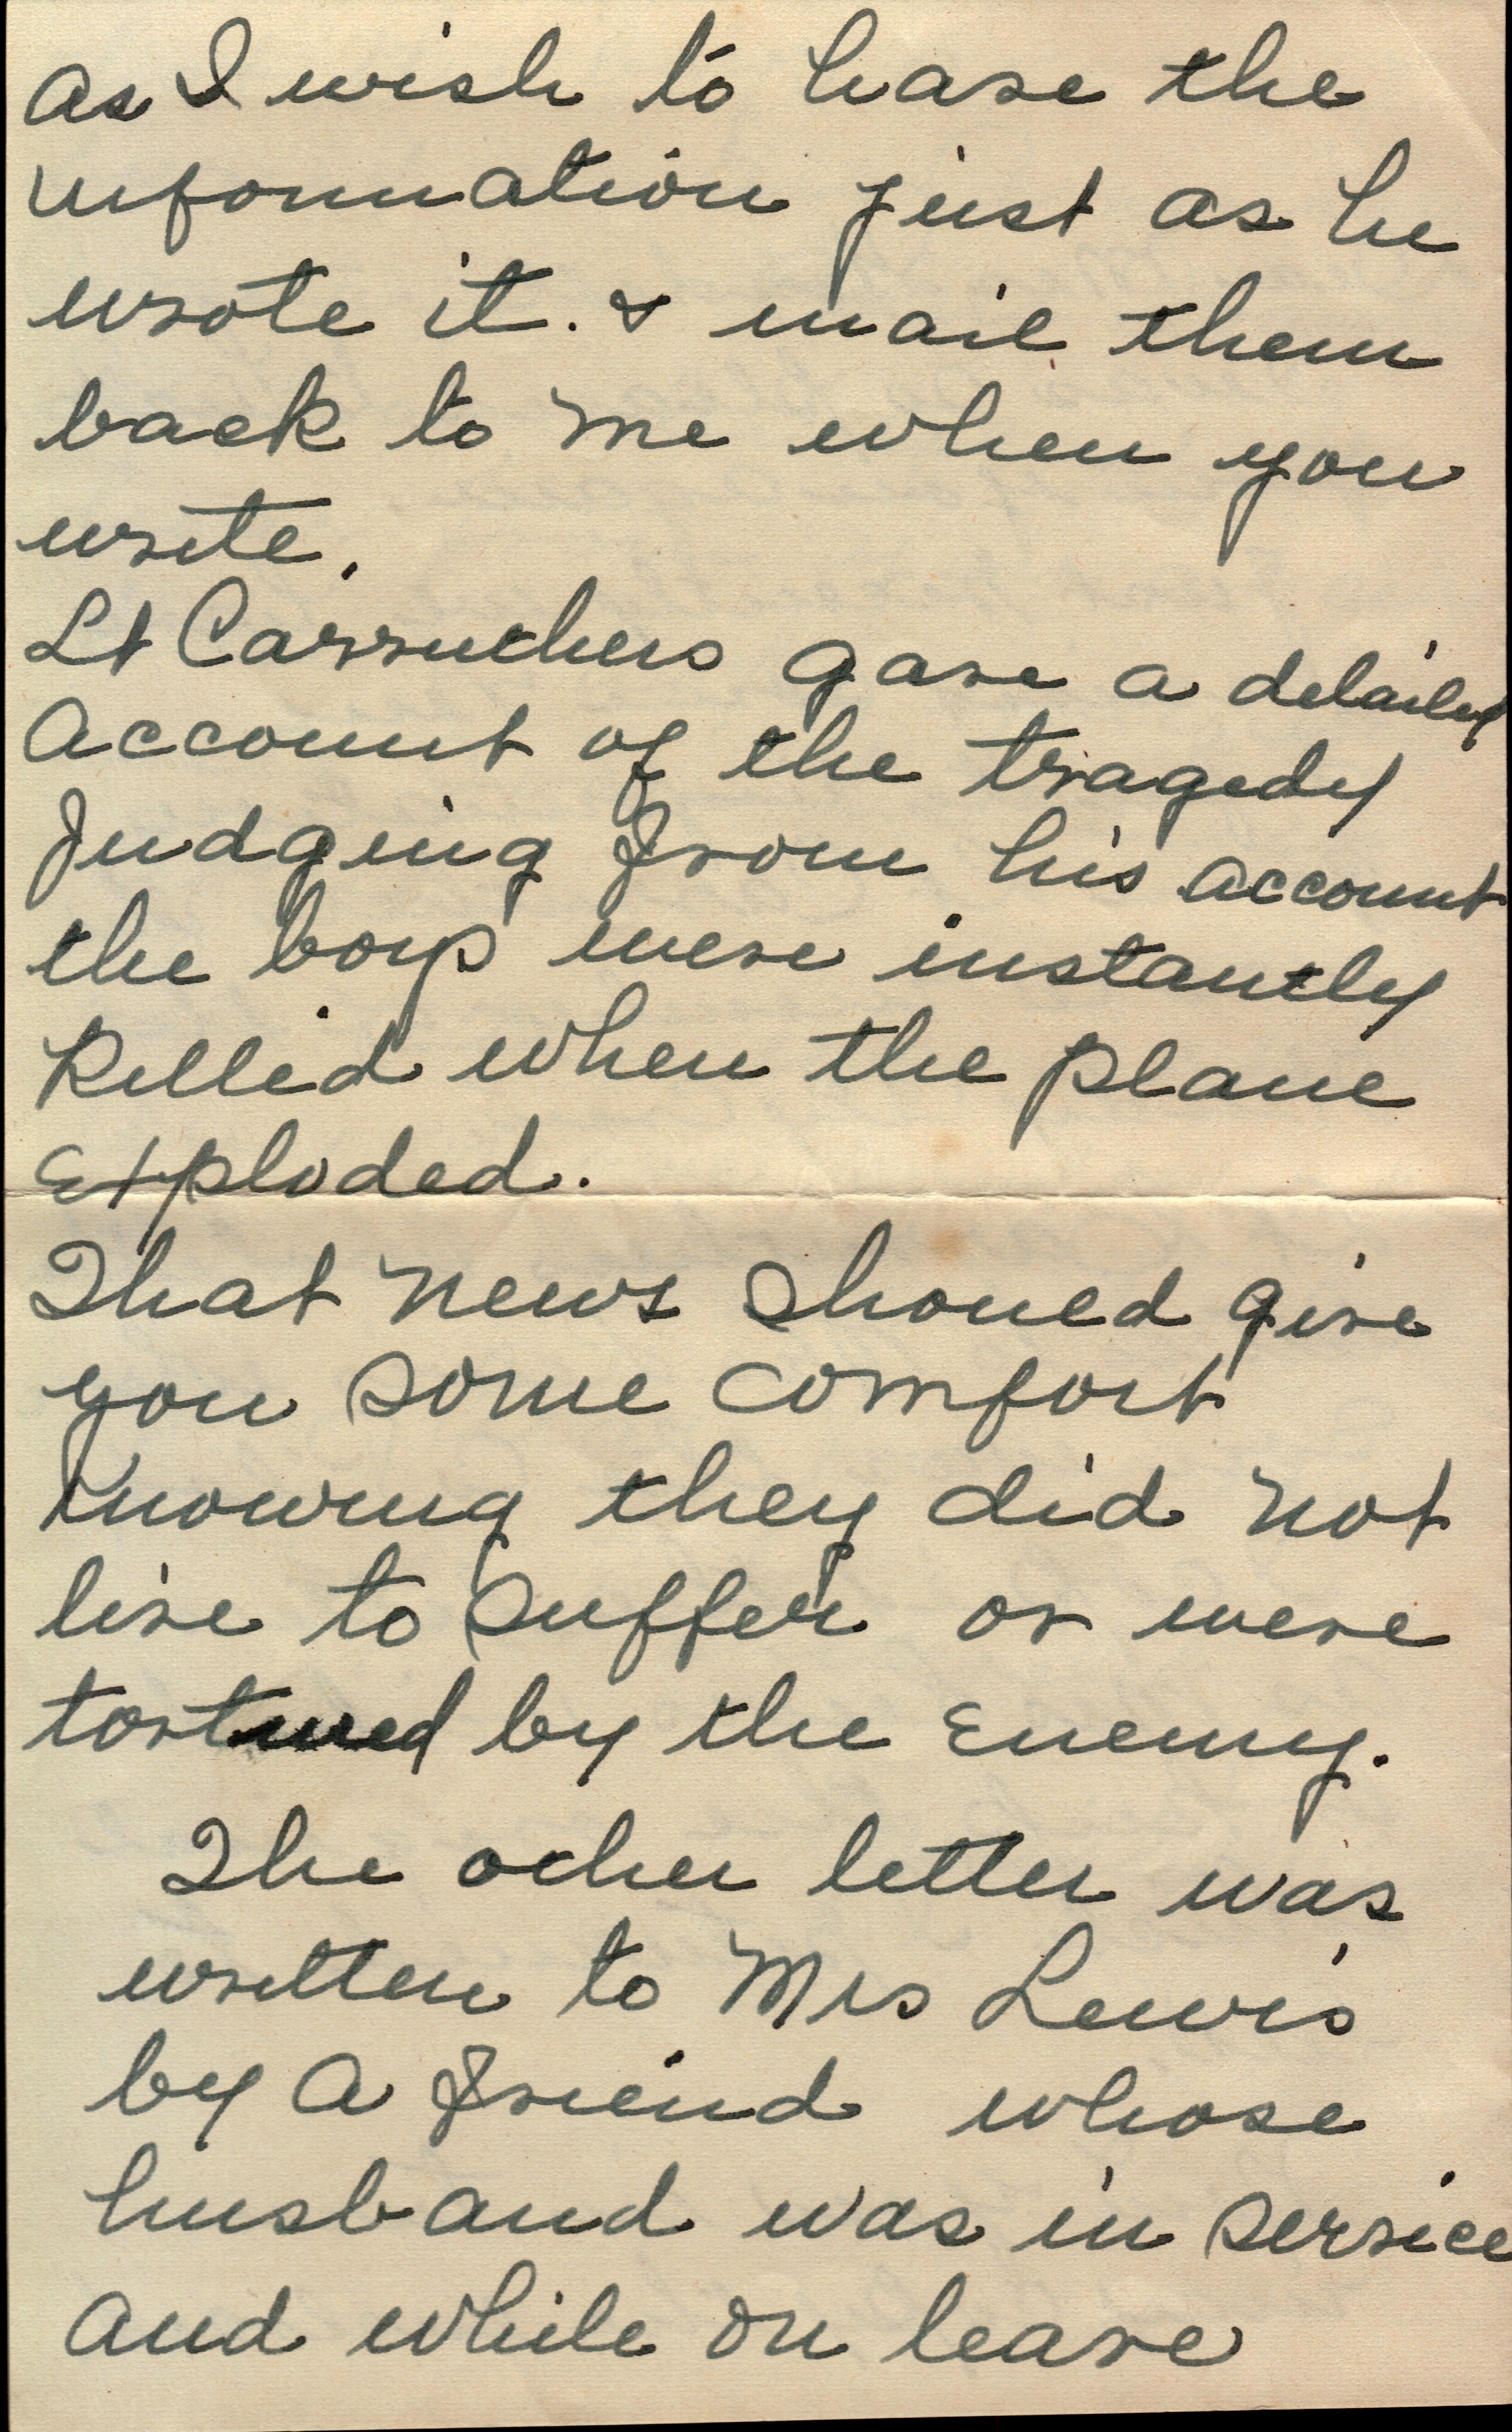 as I wish to have the
information just as he
wrote it. & mail them
back to me when you
write.
Lt Carruthers gave a detailed
account of the tragedy
Judging from his account
the boys were instantly
Killed when the plane
exploded.
That news should give
you some comfort
Knowing they did not
live to suffer or were
tortured by the Enemy.
The other letter was
written to Mrs Lewis
by a friend whose
husband was in service
and while on leave